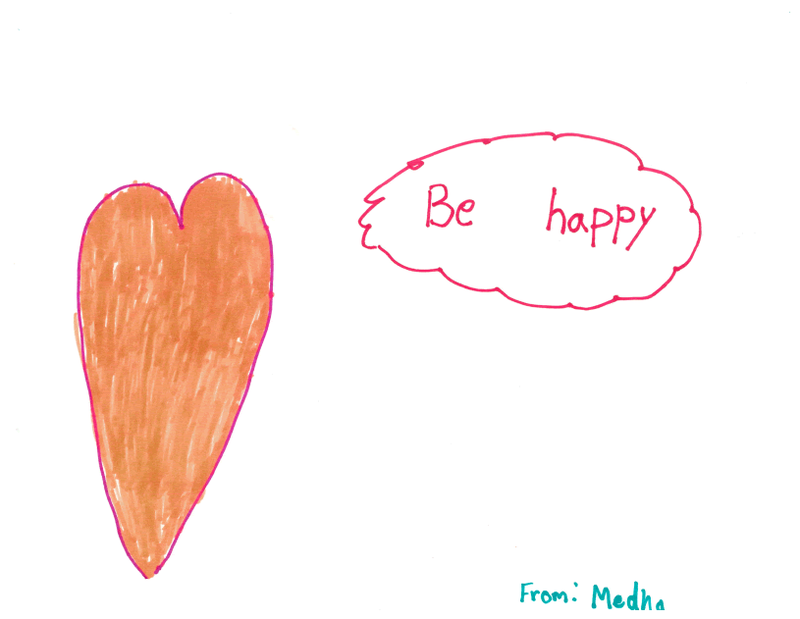 Be happy
From: Medha